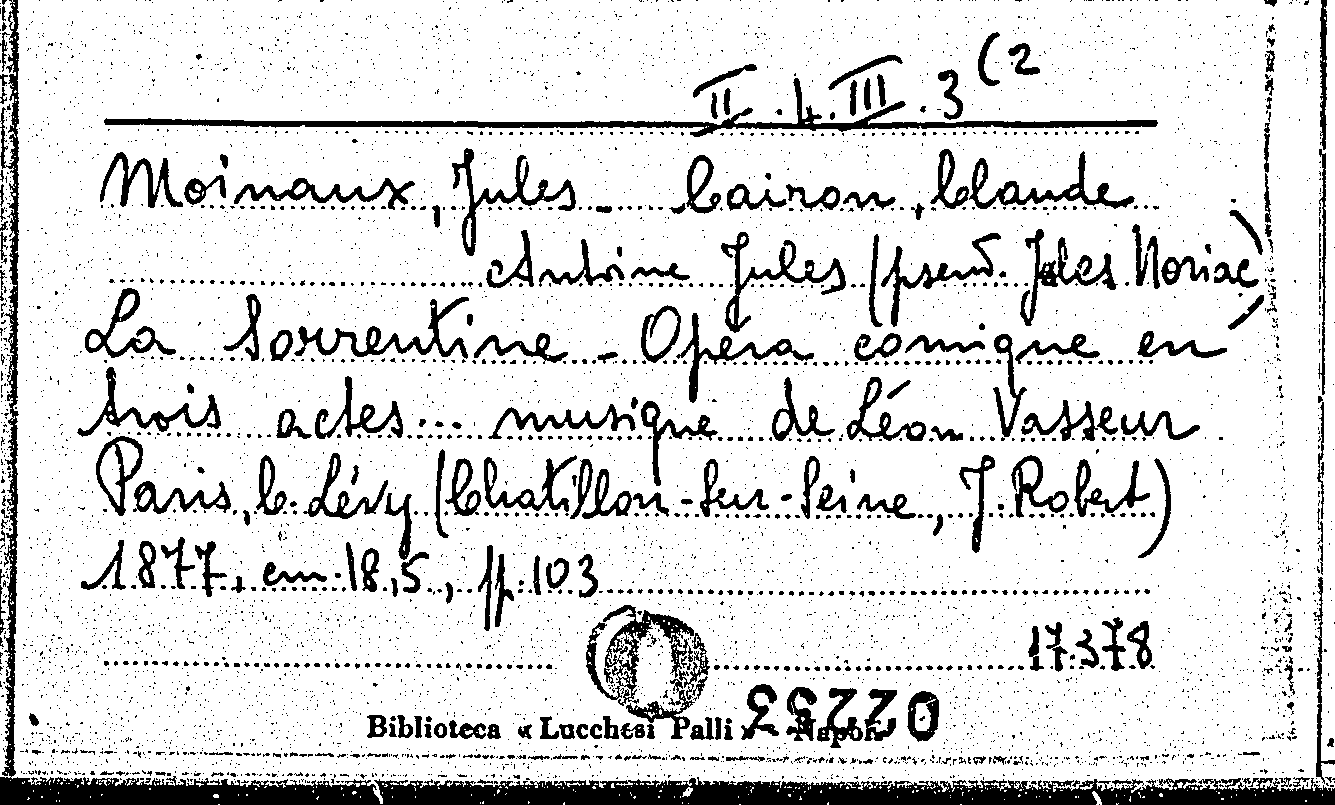 II.4.III.3(2
Moinaux, Jules - Cairon, Claude
Antoine Jules (pseud. Jules Noriac)
La Sorrentine - Opéra comique en
trois actes... musique de Léon Vasseur
Paris, C. Lévy (Chatillon-sur-Seine, J. Robert)
1877, cm. 18,5, pp. 103
17378
02233
Biblioteca « Lucchesi Palli » - Napoli